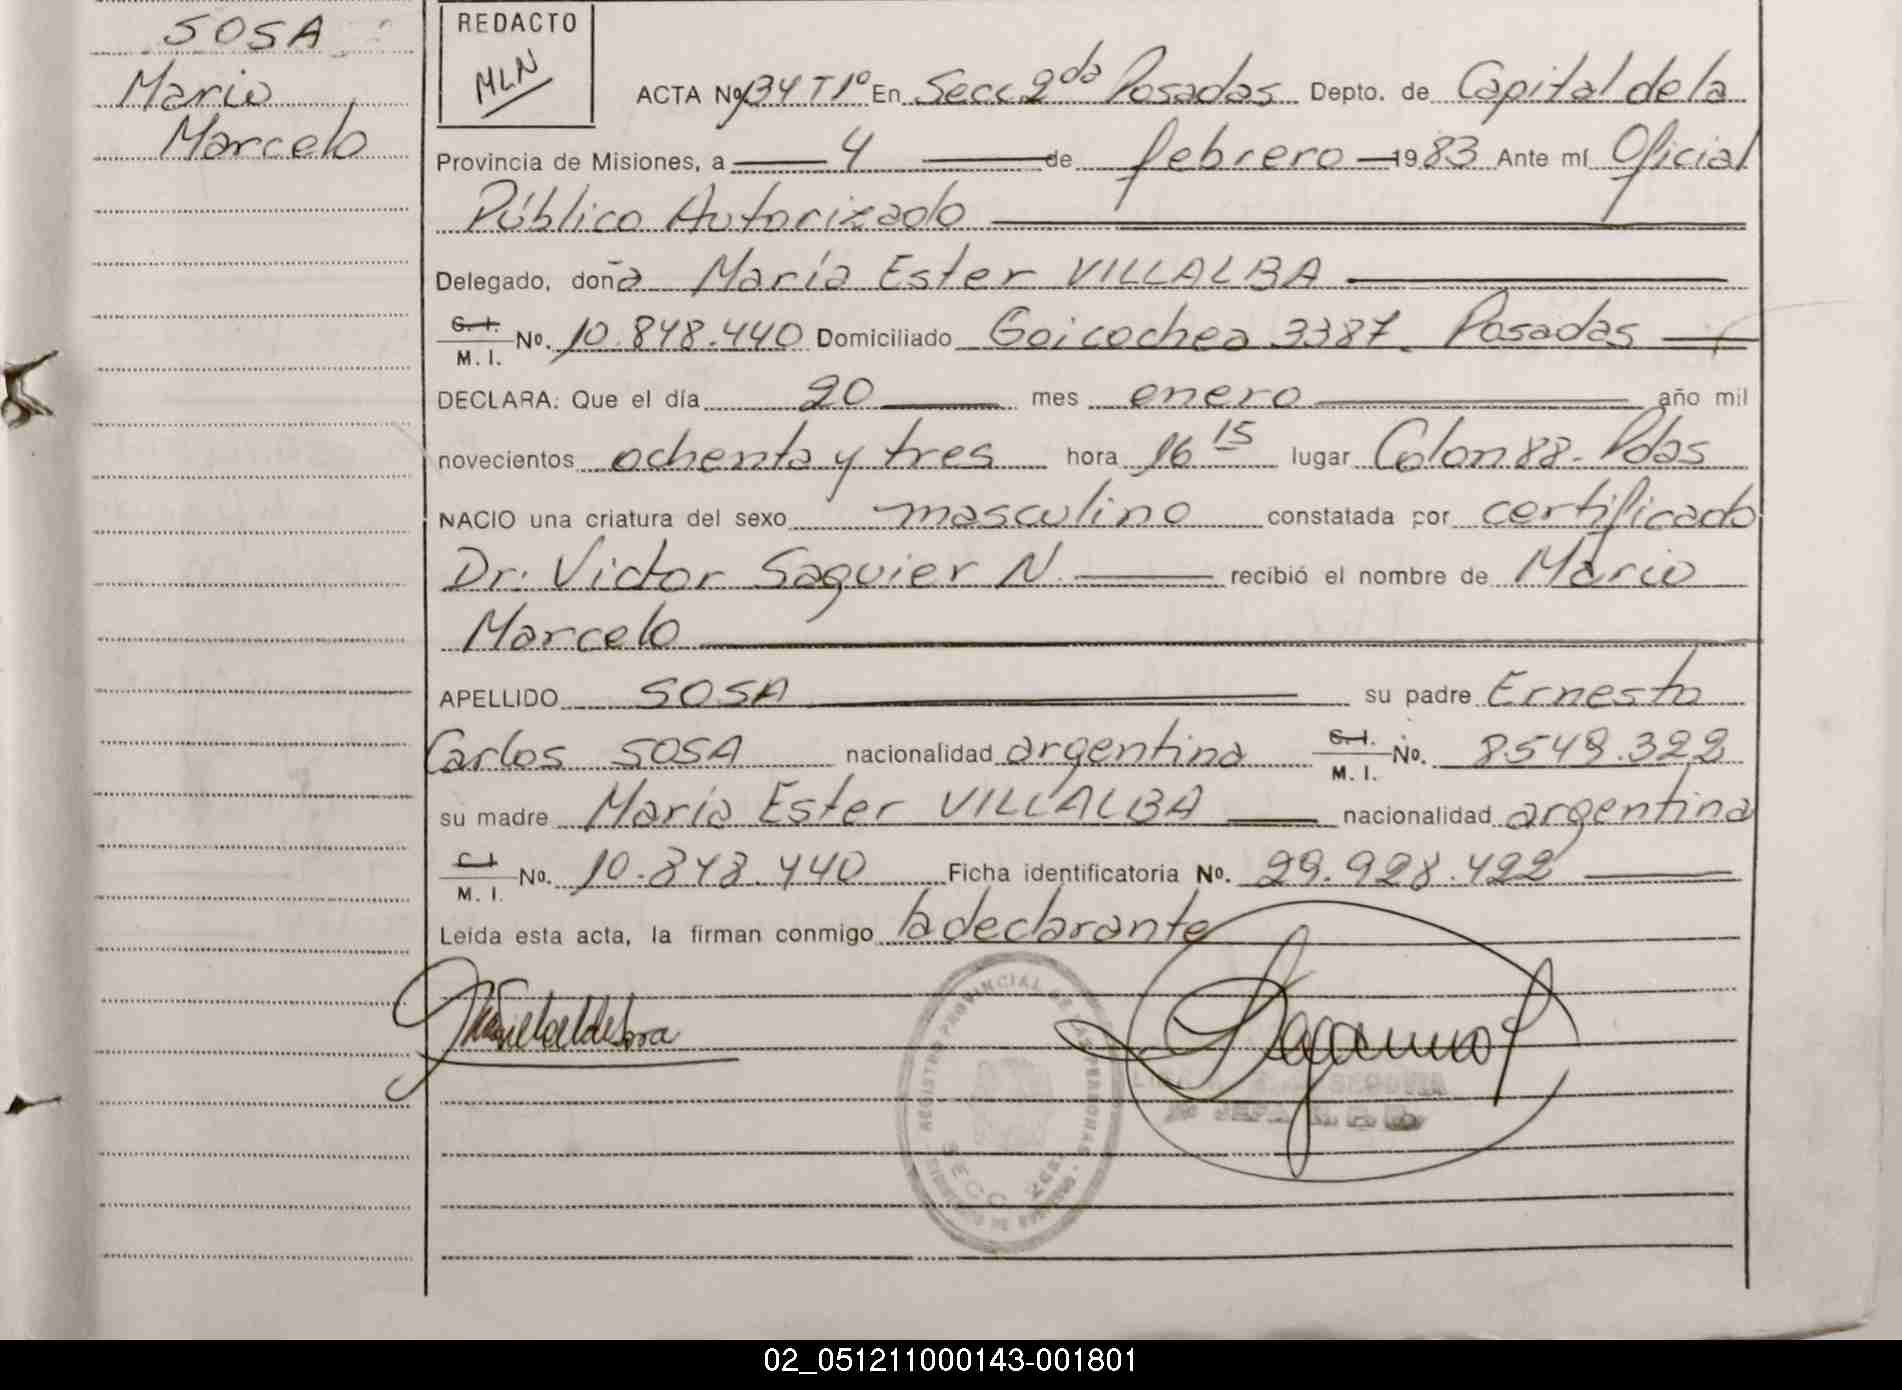 SOSA
Mario
Marcelo
REDACTO
MLN
ACTA Nº 134 T1º En Secc. 2da Posadas Depto. de Capital de la
Provincia de Misiones, a 4 de febrero 1983 Ante mí Oficial
Público Autorizado
Delegado, doña María Ester VILLALBA
C. I.
M. I. No. 10.848.440 Domiciliado Goicochea 3387. Posadas
DECLARA: Que el día 20 mes enero año mil
novecientos ochenta y tres hora 16 15 lugar Colon 88 - Pdas
NACIO una criatura del sexo masculino constatada por certificado
Dr. Victor Saguier N. recibió el nombre de Mario
Marcelo
APELLIDO SOSA su padre Ernesto
Carlos SOSA nacionalidad argentina C. I. M. I. No. 8.548.322
su madre María Ester VILLALBA nacionalidad argentina
C. I.
M. I. No. 10.848.440 Ficha identificatoria No. 29.928.422
Leída esta acta, la firman conmigo la declarante
REGISTRO PROVINCIAL DE LAS PERSONAS
SECC. 2da.
02_051211000143-001801